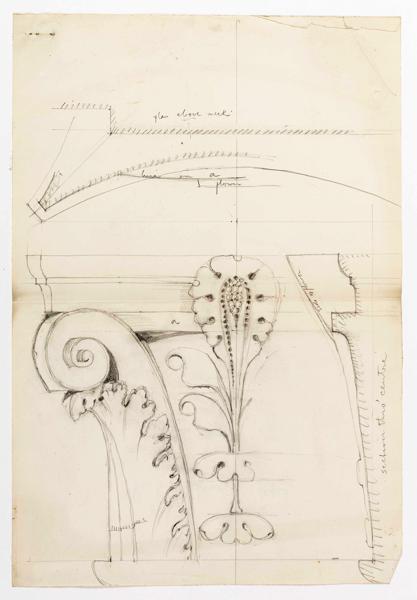 plan above neck
line on a
flower
a
section thro' centre